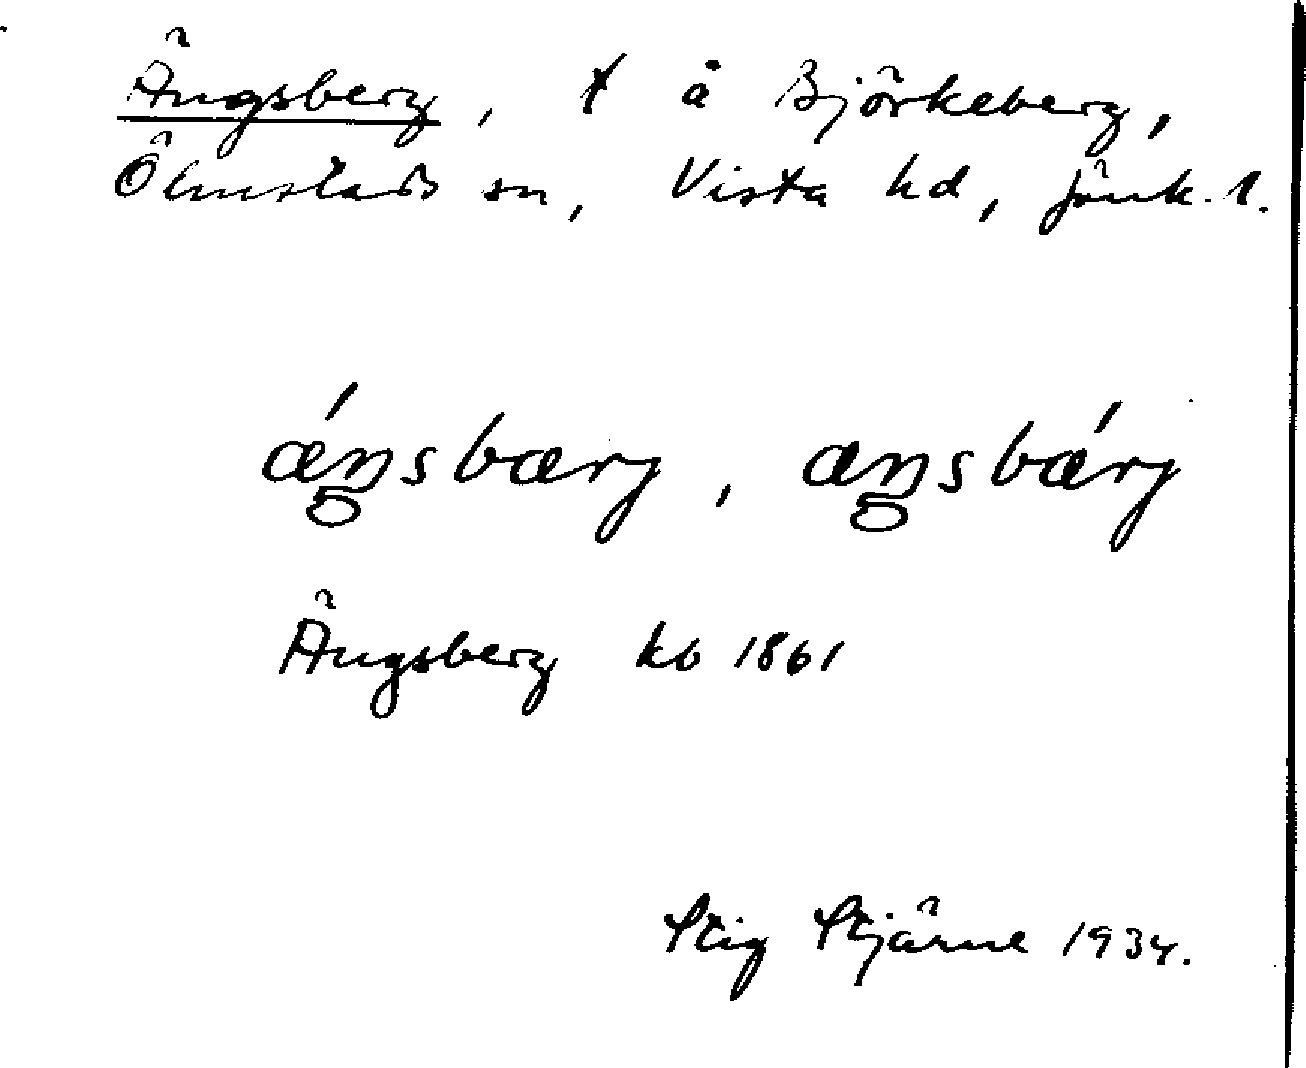 Ängsberg, t å Björkeberg,
Ölmstads sn, Vista hd, Jönk. l.
ǽŋsbærj, æŋsbǽrj
Ängsberg kb 1861
Stig Stjärne 1934.